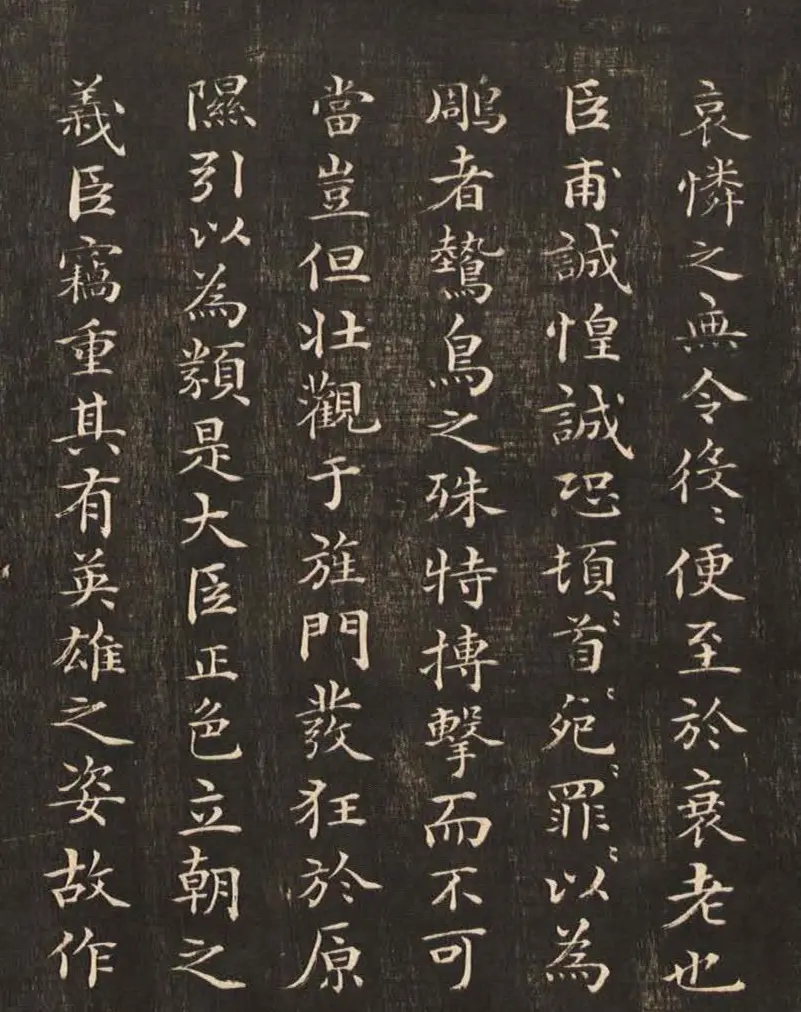 哀憐之無令役〻便至於衰老也
臣甫誠惶誠恐頓〻首〻死〻罪〻以為
鵰者鷙鳥之殊特搏擊而不可
當豈但壯觀于旌門發狂於原
隰引以為類是大臣正色立朝之
義臣竊重其有英雄之姿故作